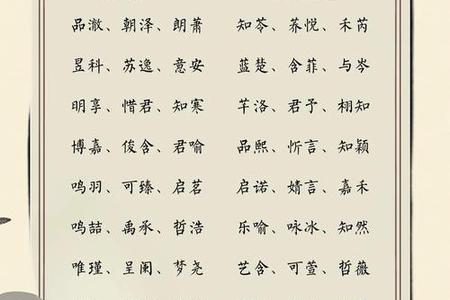 品澈、朝泽、朗萧 知苓、荞悦、禾芮
昱科、苏逸、意安 蓝楚、含菲、与岑
明享、惜君、知寒 芊洛、君予、栩知
博嘉、俊含、君喻 品熙、忻言、知颖
鸣羽、可臻、启茗 启诺、婧言、嘉禾
鸣喆、禹承、哲浩 乐喻、咏冰、知然
唯瑾、呈阑、梦尧 艺含、可萱、哲薇